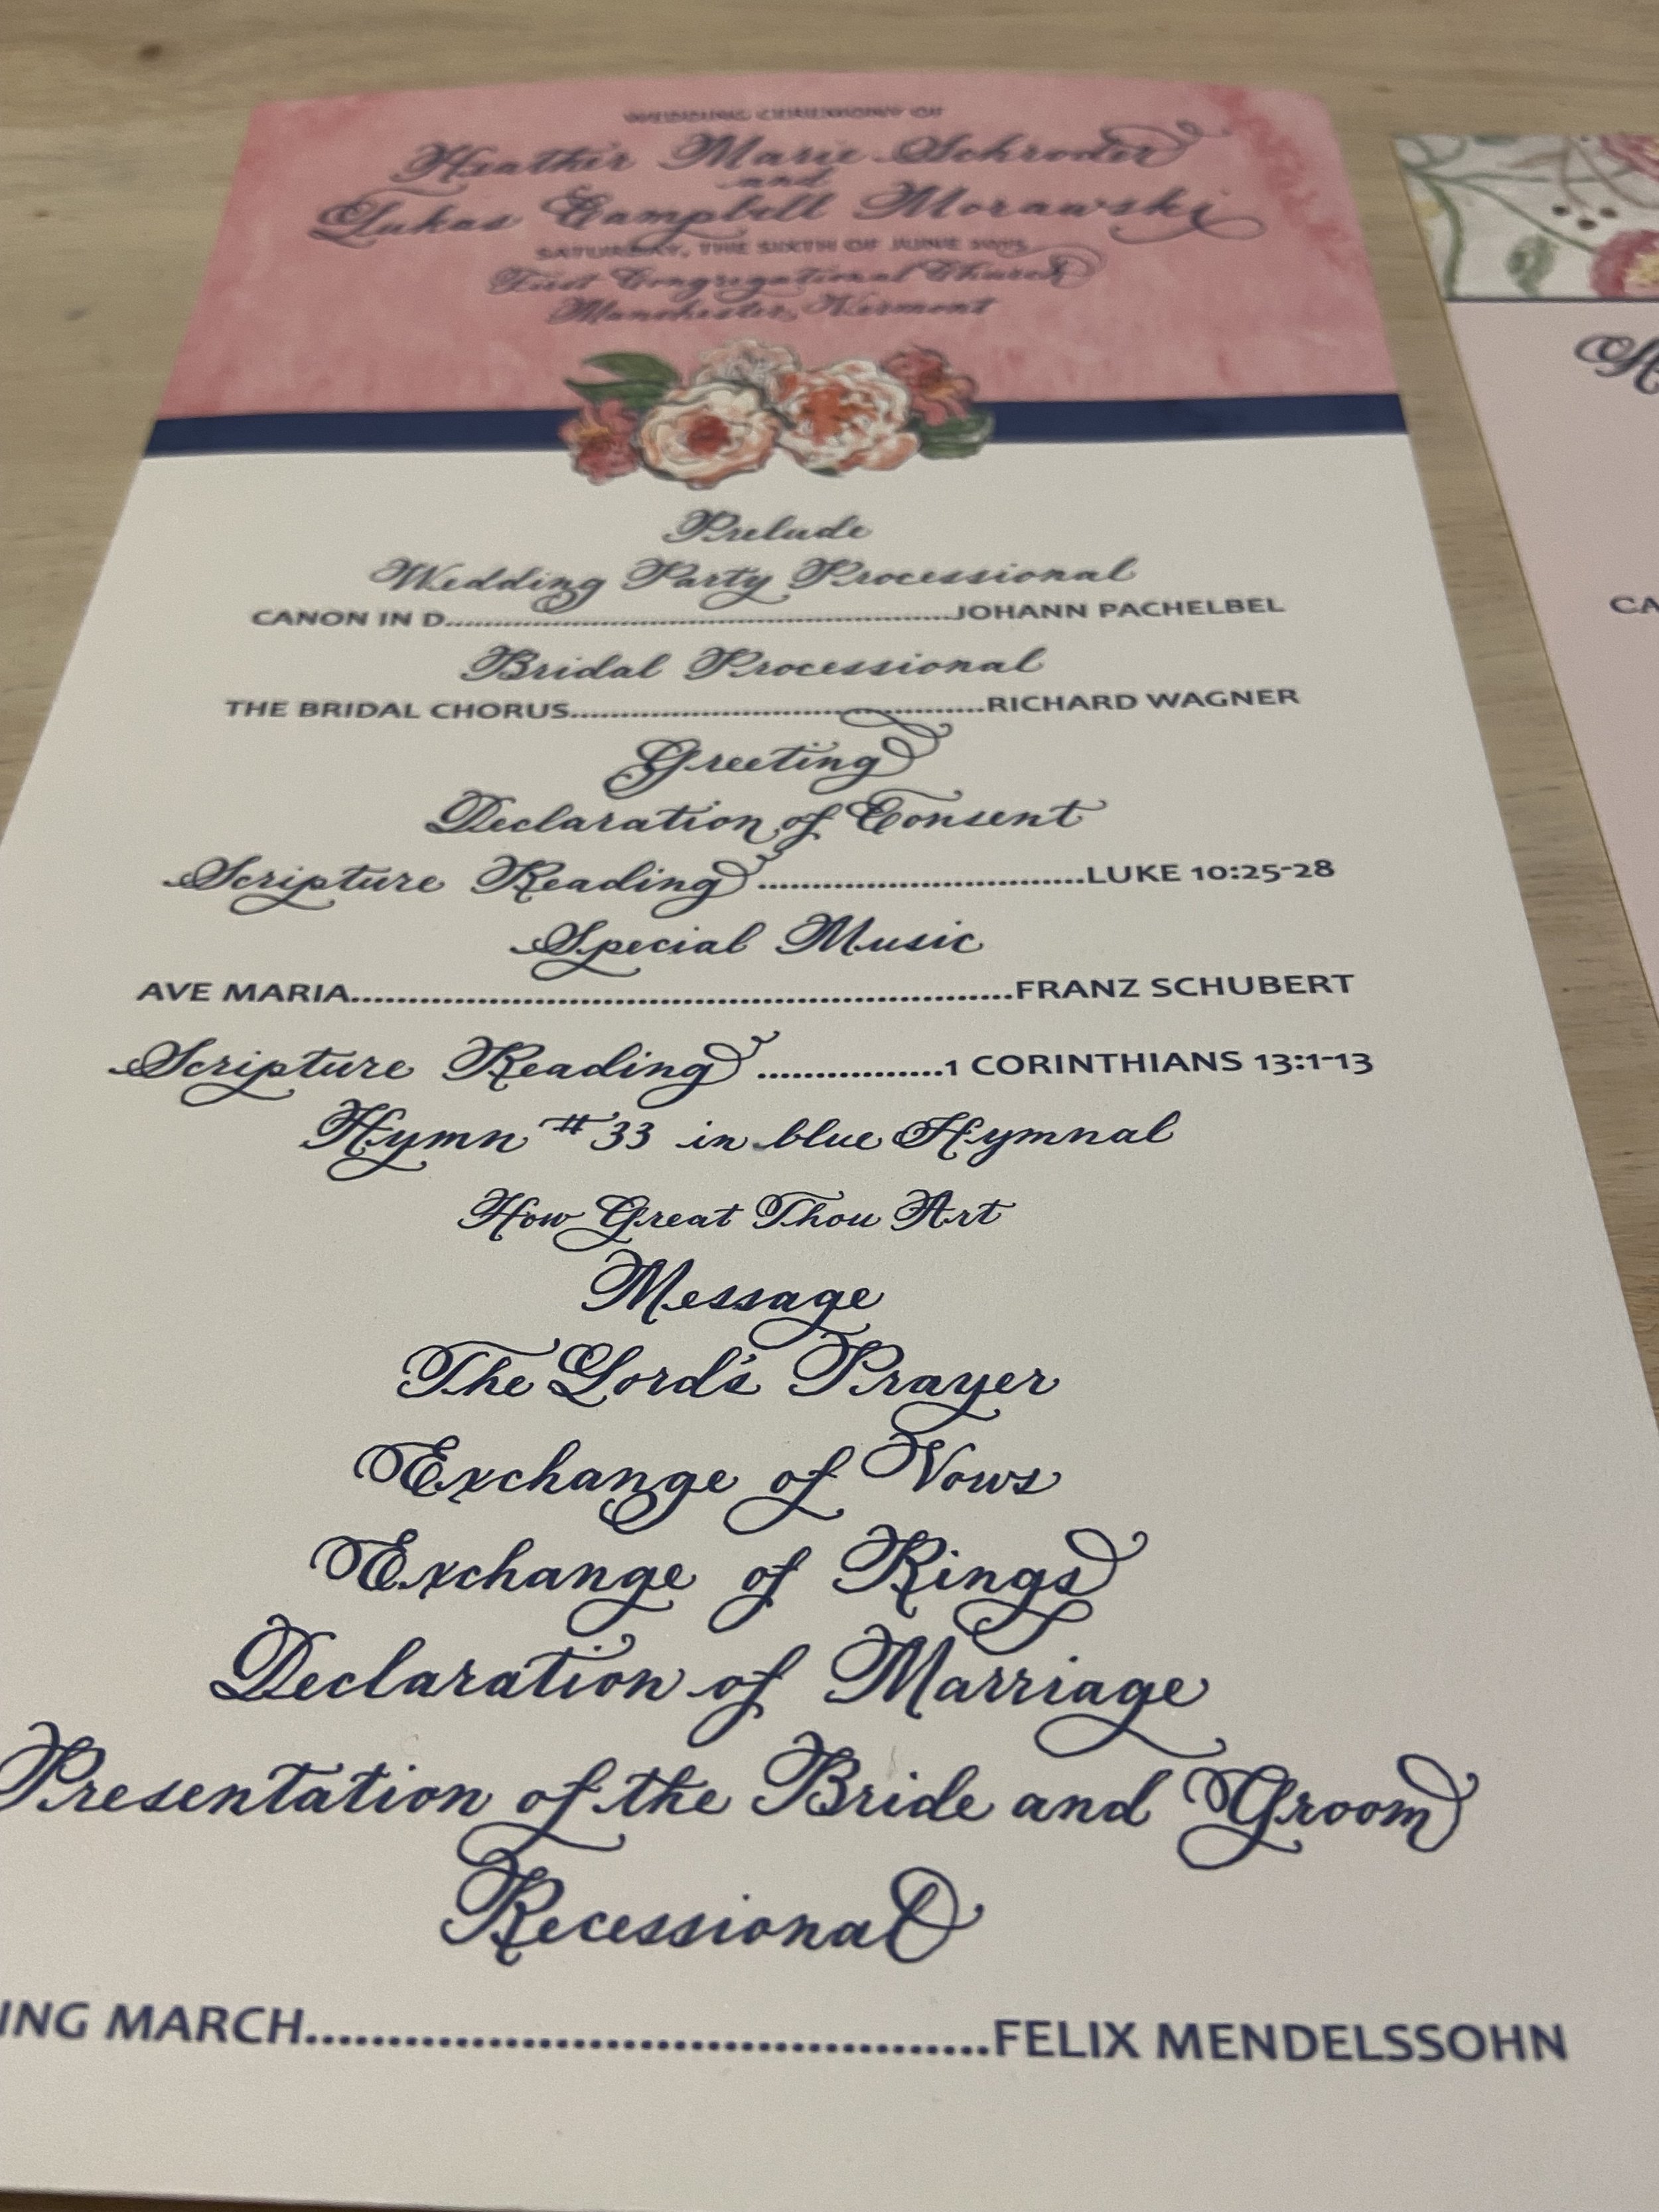 WEDDING CEREMONY OF
Heather Marie Schroder
and
Lukas Campbell Morawski
SATURDAY, THE SIXTH OF JUNE
First Congregational Church
Manchester, Vermont
Prelude
Wedding Party Processional
CANON IN D..................................................JOHANN PACHELBEL
Bridal Processional
THE BRIDAL CHORUS..........................................RICHARD WAGNER
Greeting
Declaration of Consent
Scripture Reading ................................LUKE 10:25-28
Special Music
AVE MARIA............................................................FRANZ SCHUBERT
Scripture Reading .................1 CORINTHIANS 13:1-13
Hymn #33 in blue Hymnal
How Great Thou Art
Message
The Lord's Prayer
Exchange of Vows
Exchange of Rings
Declaration of Marriage
Presentation of the Bride and Groom
Recessional
ING MARCH..........................................FELIX MENDELSSOHN
CA